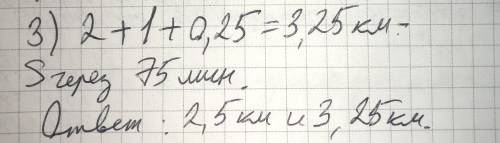 3) 2+1+0,25=3,25км-
S через 75 мин.
Ответ: 2,5км и 3,25км.